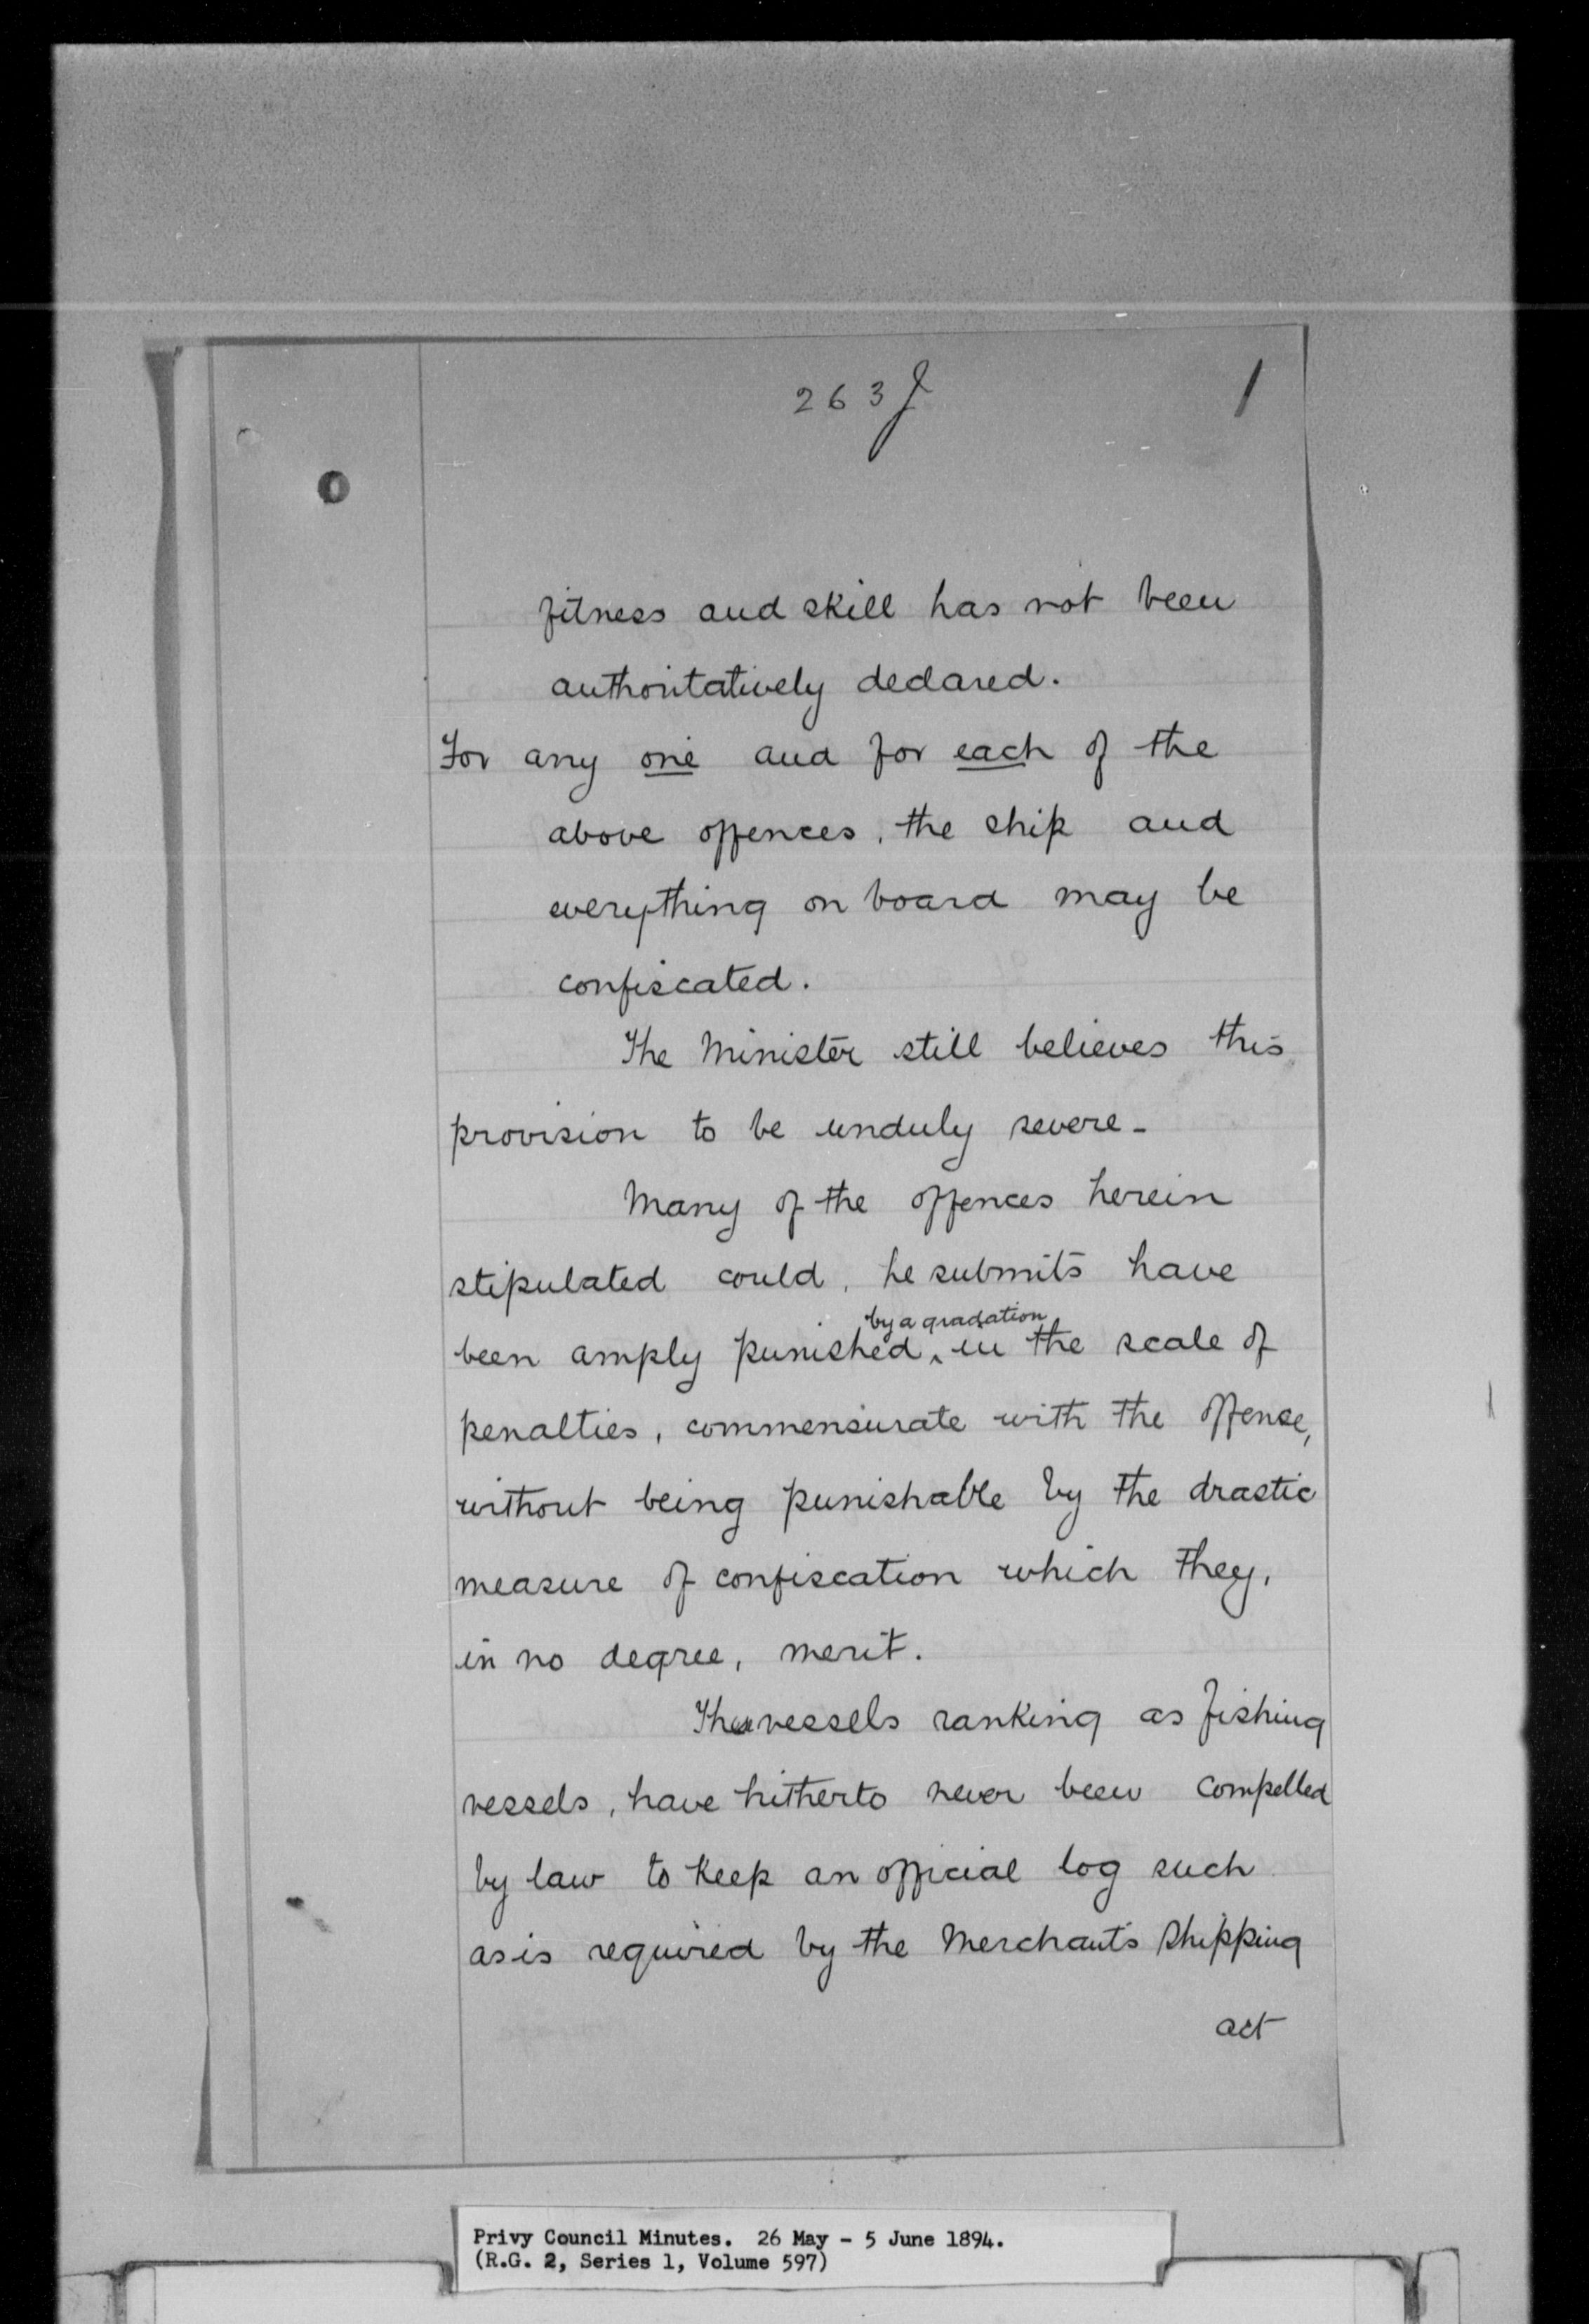 263J
1
fitness and skill has not been
authoritatively declared.
For any one and for each of the
above offences, the ship and
everything on board may be
confiscated.
The Minister still believes this
provision to be unduly severe -
Many of the offences herein
stipulated could, he submits have
by a gradation
been amply punished ‸ in the scale of
penalties, commensurate with the offense,
without being punishable by the drastic
measure of confiscation which they,
in no degree, merit.
These vessels ranking as fishing
vessels, have hitherto never been compelled
by law to keep an official log such
as is required by the Merchant's Shipping
act
Privy Council Minutes. 26 May - 5 June 1894.
(R.G. 2, Series 1, Volume 597)